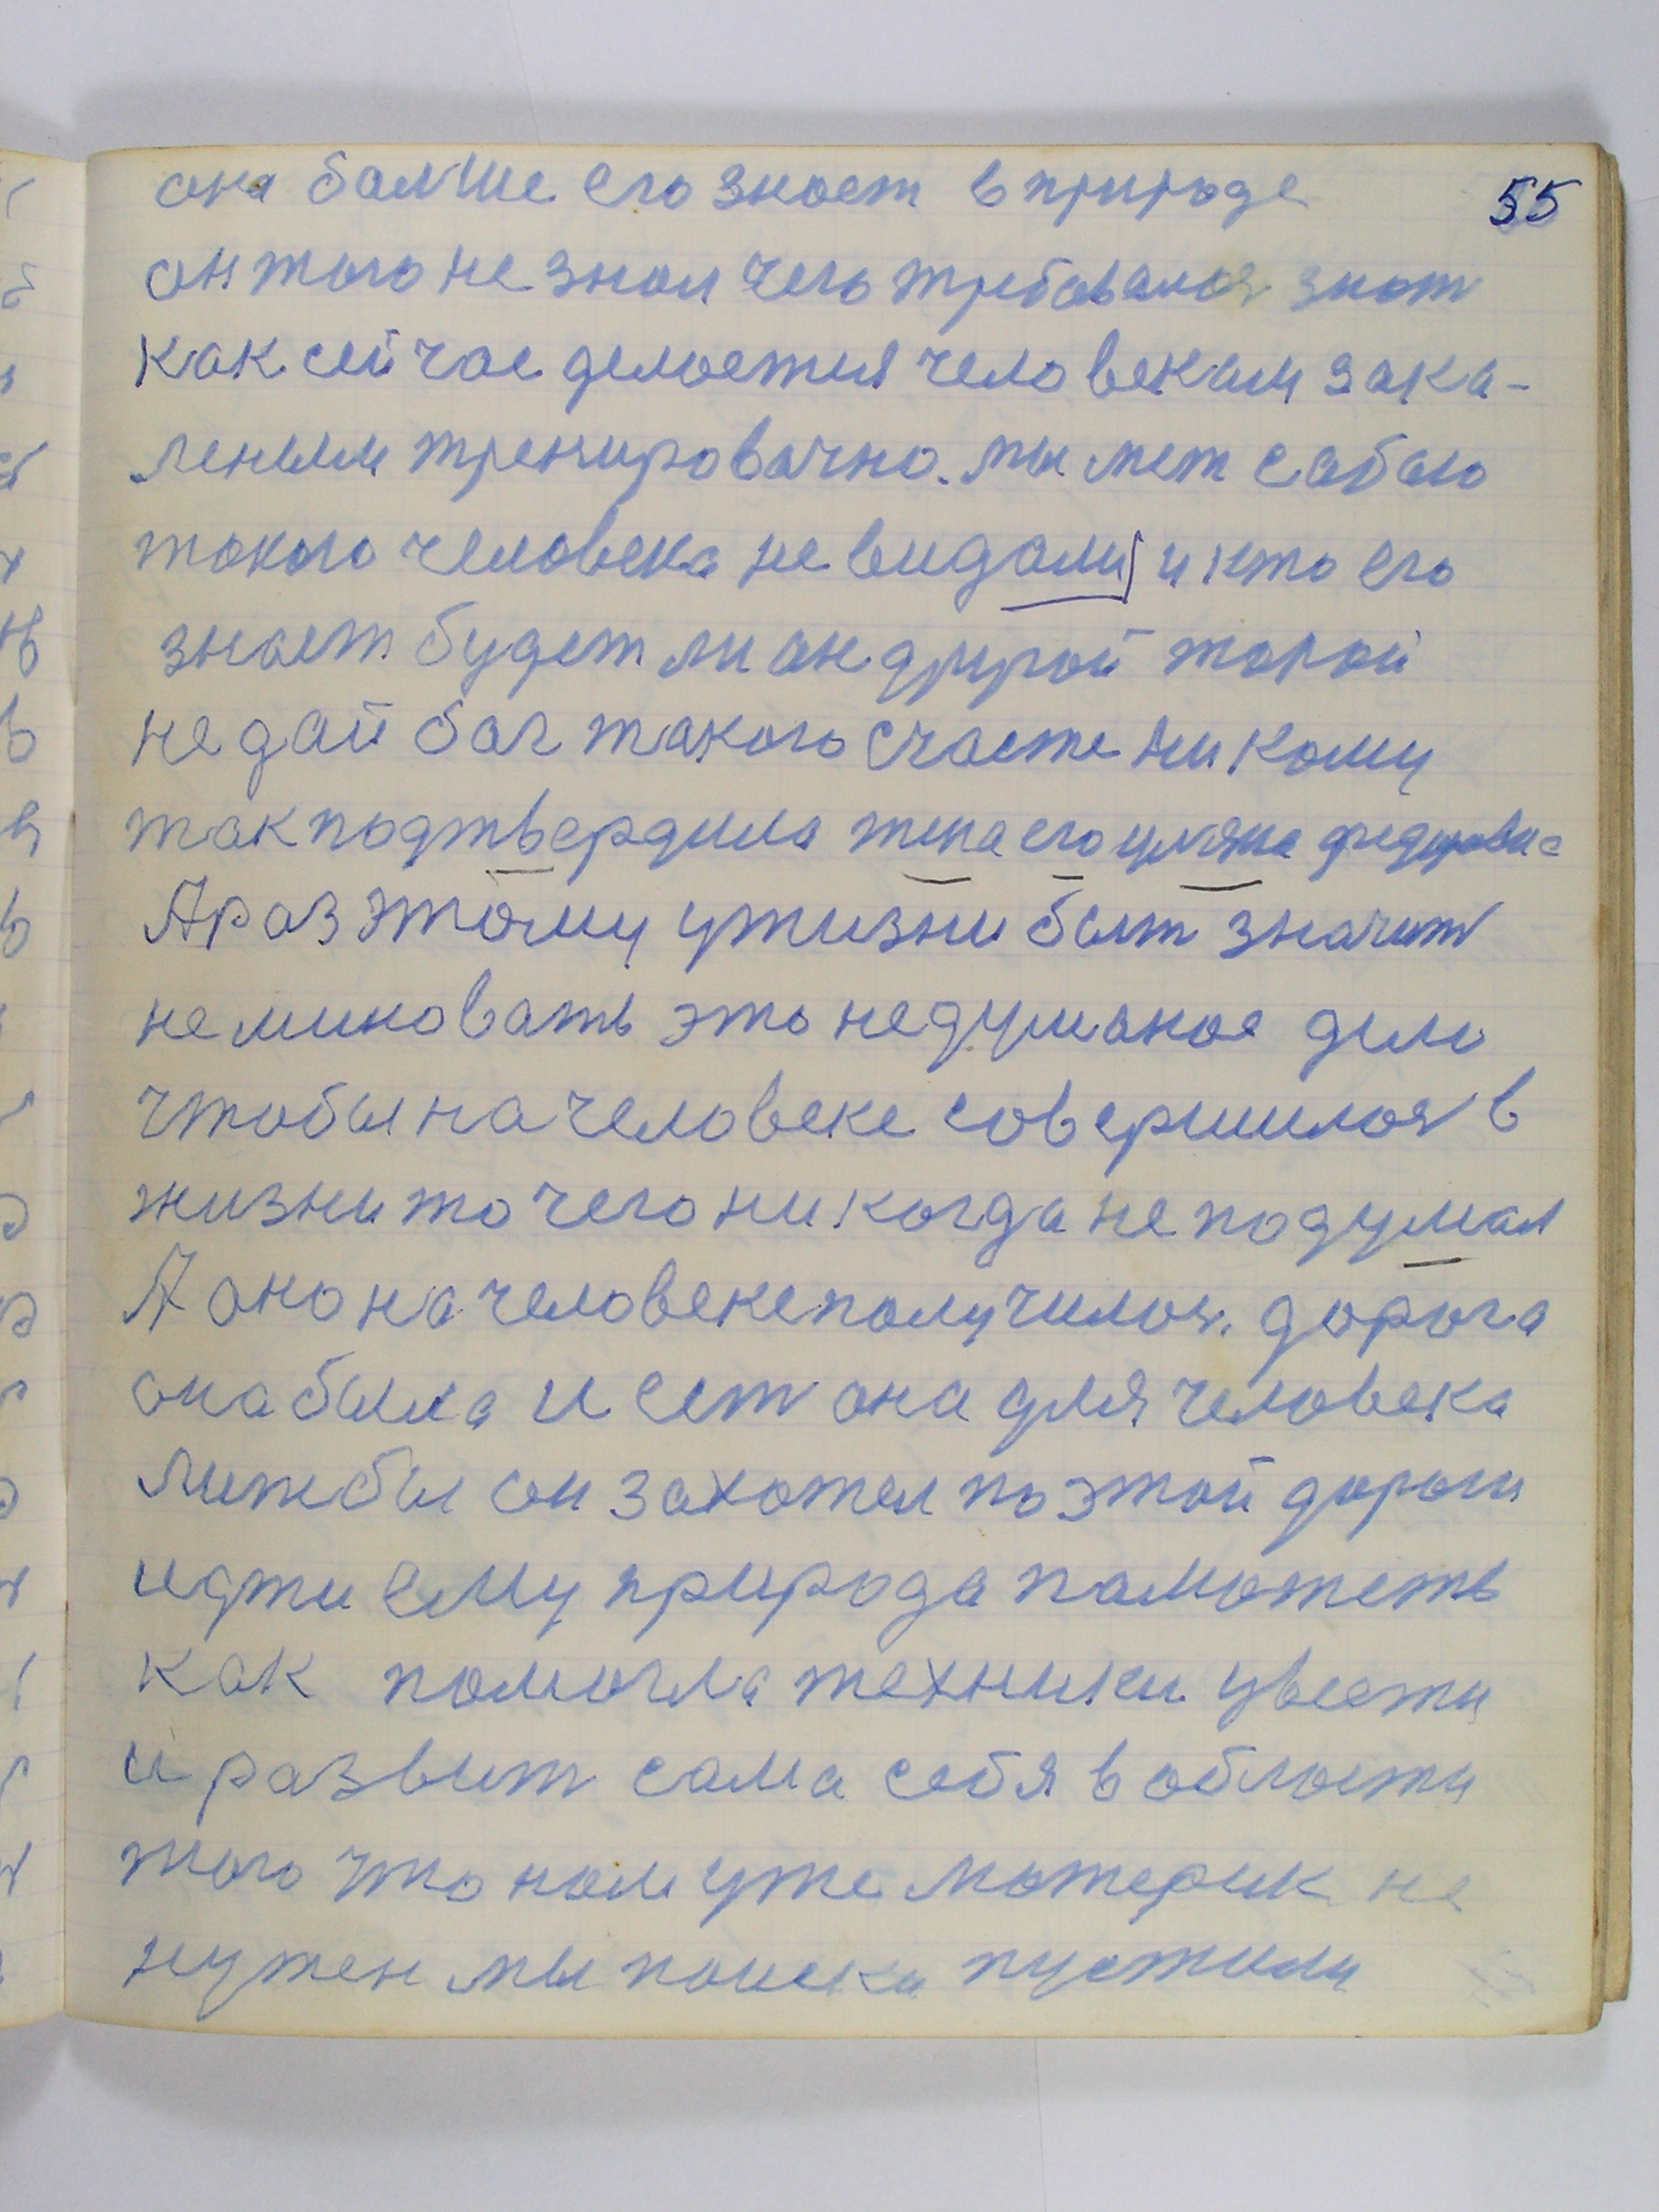 55
она болше его знает в природе
он того не знал чего требовался знат
как сейчас делоется человекам зака-
леным тренировачно. мы мет сабою
такого человека не видали и кто его
знает будет ли он другой такой
не дай бог такого счасте ни кому
так подтвердила жена его уляна федоровна
А раз этому у жизни быт значит
не миновать это недуманое дело
чтобы на человеке совершился в
жизни то чего ни когда не подумал
А оно на человеке получился. дорога
она была и ест она для человека
лиж бы он захотел по этой дороги
идти ему природа поможеть
как помогла техники увести
и развит сама себя в области
того что нам уже материк не
нужен мы поиски пустили